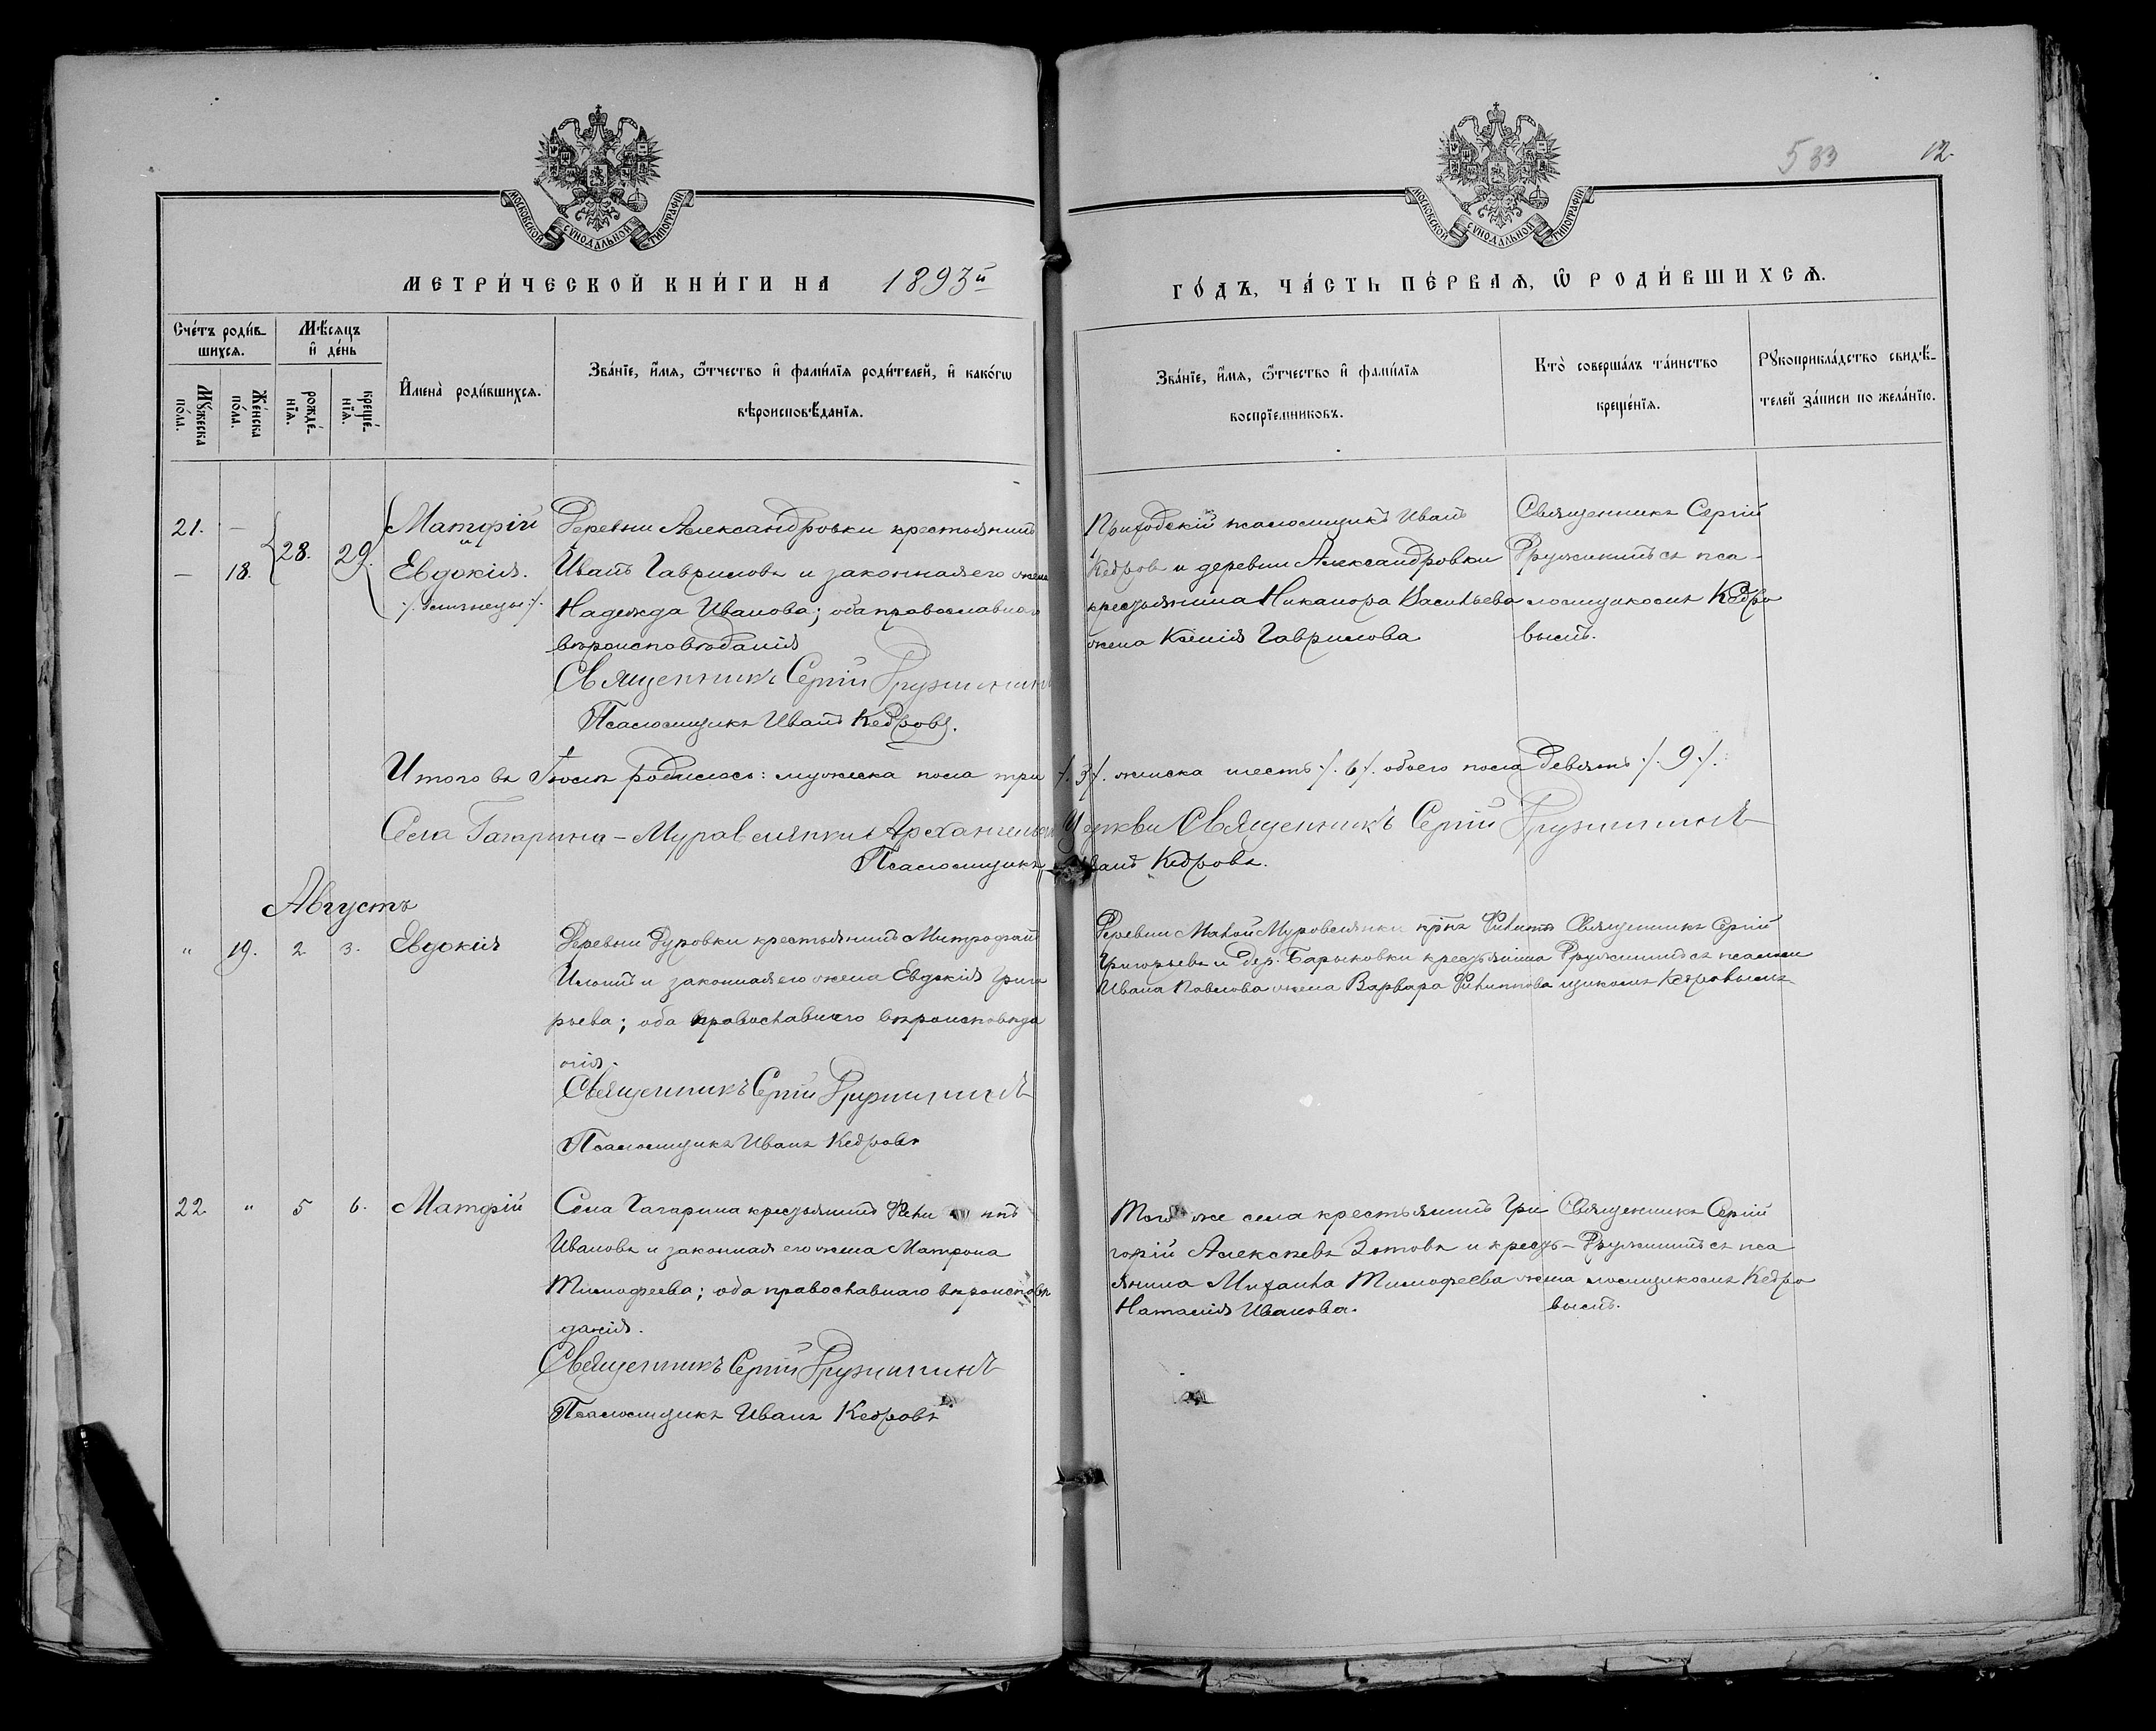 533
12.
МОСКОВСКОЙ СѴНОДАЛЬНОЙ ТИПОГРАФІИ
МОСКОВСКОЙ СѴНОДАЛЬНОЙ ТИПОГРАФІИ
МЕТРИ́ЧЕСКОЙ КНИ́ГИ НА 1893й
ГО́ДЪ, ЧА́СТЬ ПЕ́РВАѦ, Ѿ РОДИ́ВШИХСѦ.
Сче́тъ роди́в-
шихсѧ.
Мꙋ́жеска
по́ла.
Же́нска
по́ла.
Мѣ́сѧцъ
и҆ де́нь
рожде́-
нїѧ.
креще́-
нїѧ.
И҆мена̀ роди́вшихсѧ.
Зва́нїе, и҆́мѧ, ѻ҆́тчество и҆ фами́лїѧ роди́телей, и҆ како́гѡ
вѣроисповѣ́данїѧ.
Зва́нїе, и҆́мѧ, ѻ҆́тчество и҆ фами́лїѧ
воспрїе́мниковъ.
Кто̀ соверша́лъ та́инство
креще́нїѧ.
Рꙋкоприкла́дство свидѣ́-
телей за́писи по жела́нїю.
21. – 28. 29. Матфій
и
– 18. Евдокія.
./. близнецы ./.
Деревни Александровки крестьянинъ
Иванъ Гавриловъ и законная его жена
Надежда Иванова; оба православнаго
вѣроисповѣданія
Священникъ Сергій Дружининъ
Псаломщикъ Иванъ Кедровъ.
Приходскій псаломщикъ Иванъ
Кедровъ и деревни Александровки
крестьянина Никанора Васильева
жена Ксенія Гаврилова
Священникъ Сергій
Дружининъ съ пса-
ломщикомъ Кедро
вымъ.
Итого въ Іюлѣ родилось: мужеска пола три ./. 3 ./. женска шесть ./. 6 ./. обоего пола девять ./. 9 ./.
Села Гагарина-Муравлянки Архангельской Церкви Священникъ Сергій Дружининъ
Псаломщикъ Иванъ Кедровъ.
Августъ
" 19. 2 3. Евдокія
Деревни Дуровки крестьянинъ Митрофанъ
и законная его жена Евдокія Григо
рьева; оба православнаго вѣроисповѣда
нія.
Священникъ Сергій Дружининъ
Псаломщикъ Иванъ Кедровъ
Деревни Малой Муровлянки крнъ Филиппъ
Григорьевъ и дер. Барыковки крестьянина
Ивана Павлова жена Варвара Филиппова
Священникъ Сергій
Дружининъ съ псалом
щикомъ Кедровымъ
22. " 5 6. Матфій
Села Гагарина крестьянинъ
Ивановъ и законная его жена Матрона
Тимофеева; оба православнаго вѣроисповѣ
данія.
Священникъ Сергій Дружининъ
Псаломщикъ Иванъ Кедровъ
Того же села крестьянинъ Гри
горій Алексѣевъ Зотовъ и кресть-
янина Михаила Тимофеева жена
Наталія Иванова.
Священникъ Сергій
Дружининъ съ пса
ломщикомъ Кедро
вымъ.